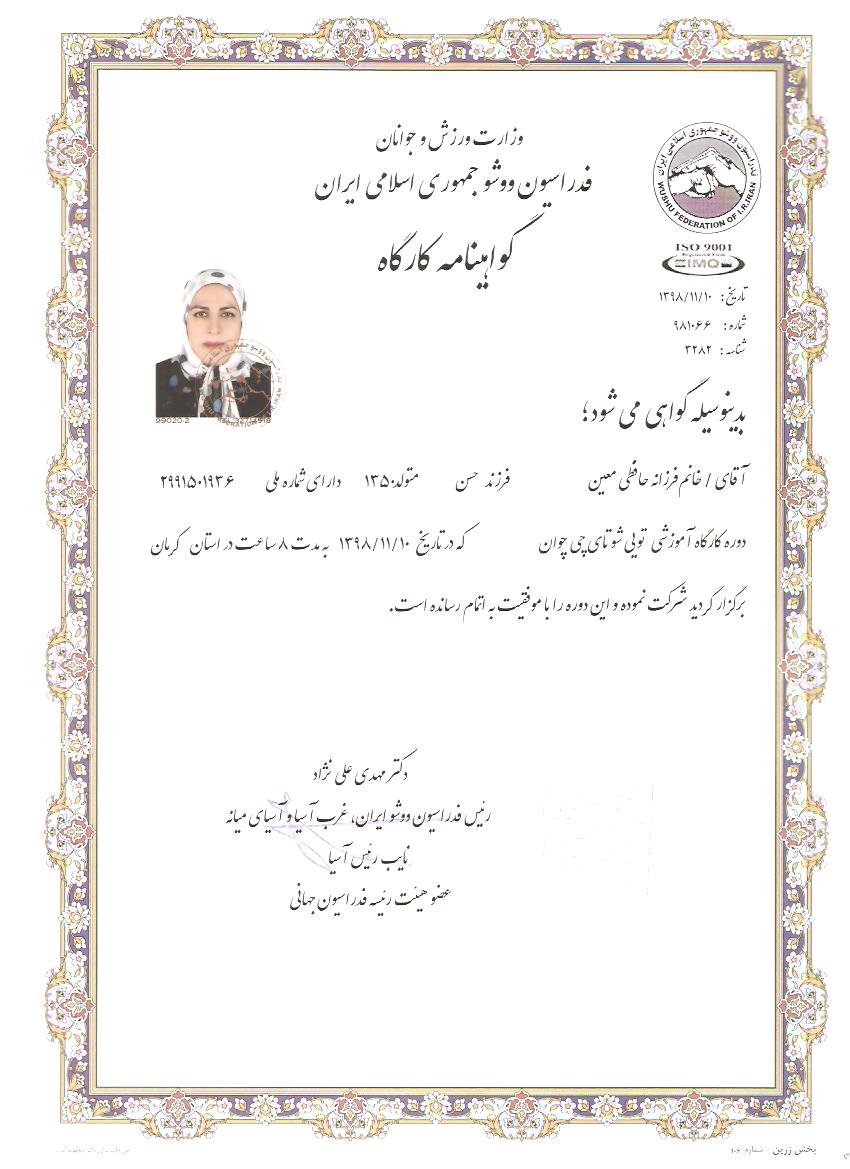 وزارت ورزش و جوانان
فدراسیون ووشو جمهوری اسلامی ایران
گواهینامه کارگاه
فدراسیون ووشو جمهوری اسلامی ایران
WUSHU FEDERATION OF I.R.IRAN
ISO 9001
Registered Firm
IMQ
تاریخ: ۱۳۹۸/۱۱/۱۰
شماره: ۹۸۱۰۶۶
شناسه: ۳۲۸۲
99020-2
بدینوسیله گواهی می شود؛
آقای / خانم فرزانه حافظی معین فرزند حسن متولد ۱۳۵۰ دارای شماره ملی ۲۹۹۱۵۰۱۹۳۶
دوره کارگاه آموزشی تویی شو تای چی چوان که در تاریخ ۱۳۹۸/۱۱/۱۰ به مدت ۸ ساعت در استان کرمان
برگزار گردید شرکت نموده و این دوره را با موفقیت به اتمام رسانده است.
دکتر مهدی علی نژاد
رئیس فدراسیون ووشو ایران، غرب آسیا و آسیای میانه
نایب رئیس آسیا
عضو هیئت رئیسه فدراسیون جهانی
پخش زرین - شماره ۱۰۶